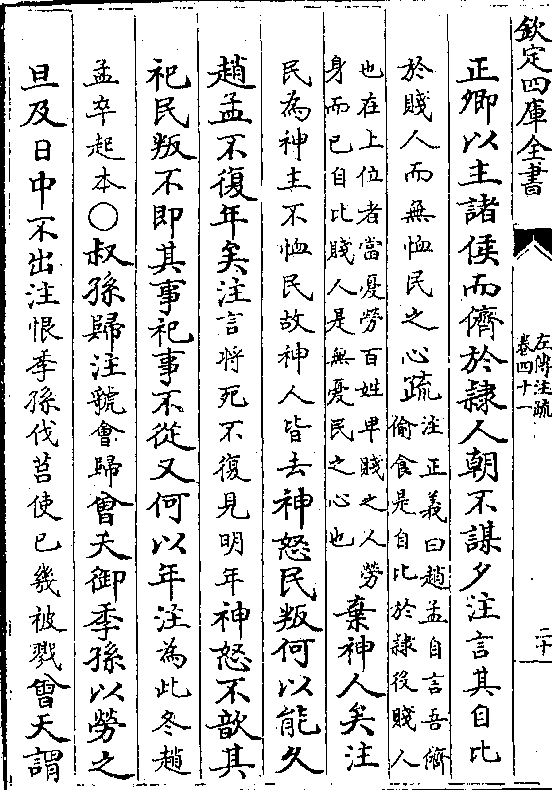 欽定四庫全書
左傳注疏
卷四十一
二十
正卿以主諸侯而儕於隸人朝不謀夕注言其自比
於賤人而無恤民之心疏注正義曰趙孟自言吾儕
偷食是自比於隸役賤人
也在上位者當憂勞百姓卑賤之人勞
身而已自比賤人是無憂民之心也棄神人矣注
民為神主不恤民故神人皆去神怒民叛何以能久
趙孟不復年矣注言將死不復見明年神怒不歆其
祀民叛不即其事祀事不從又何以年注為此冬趙
孟卒起本○叔孫歸注虢會歸曾夭御季孫以勞之
旦及日中不出注恨季孫伐莒使已幾被戮曾夭謂